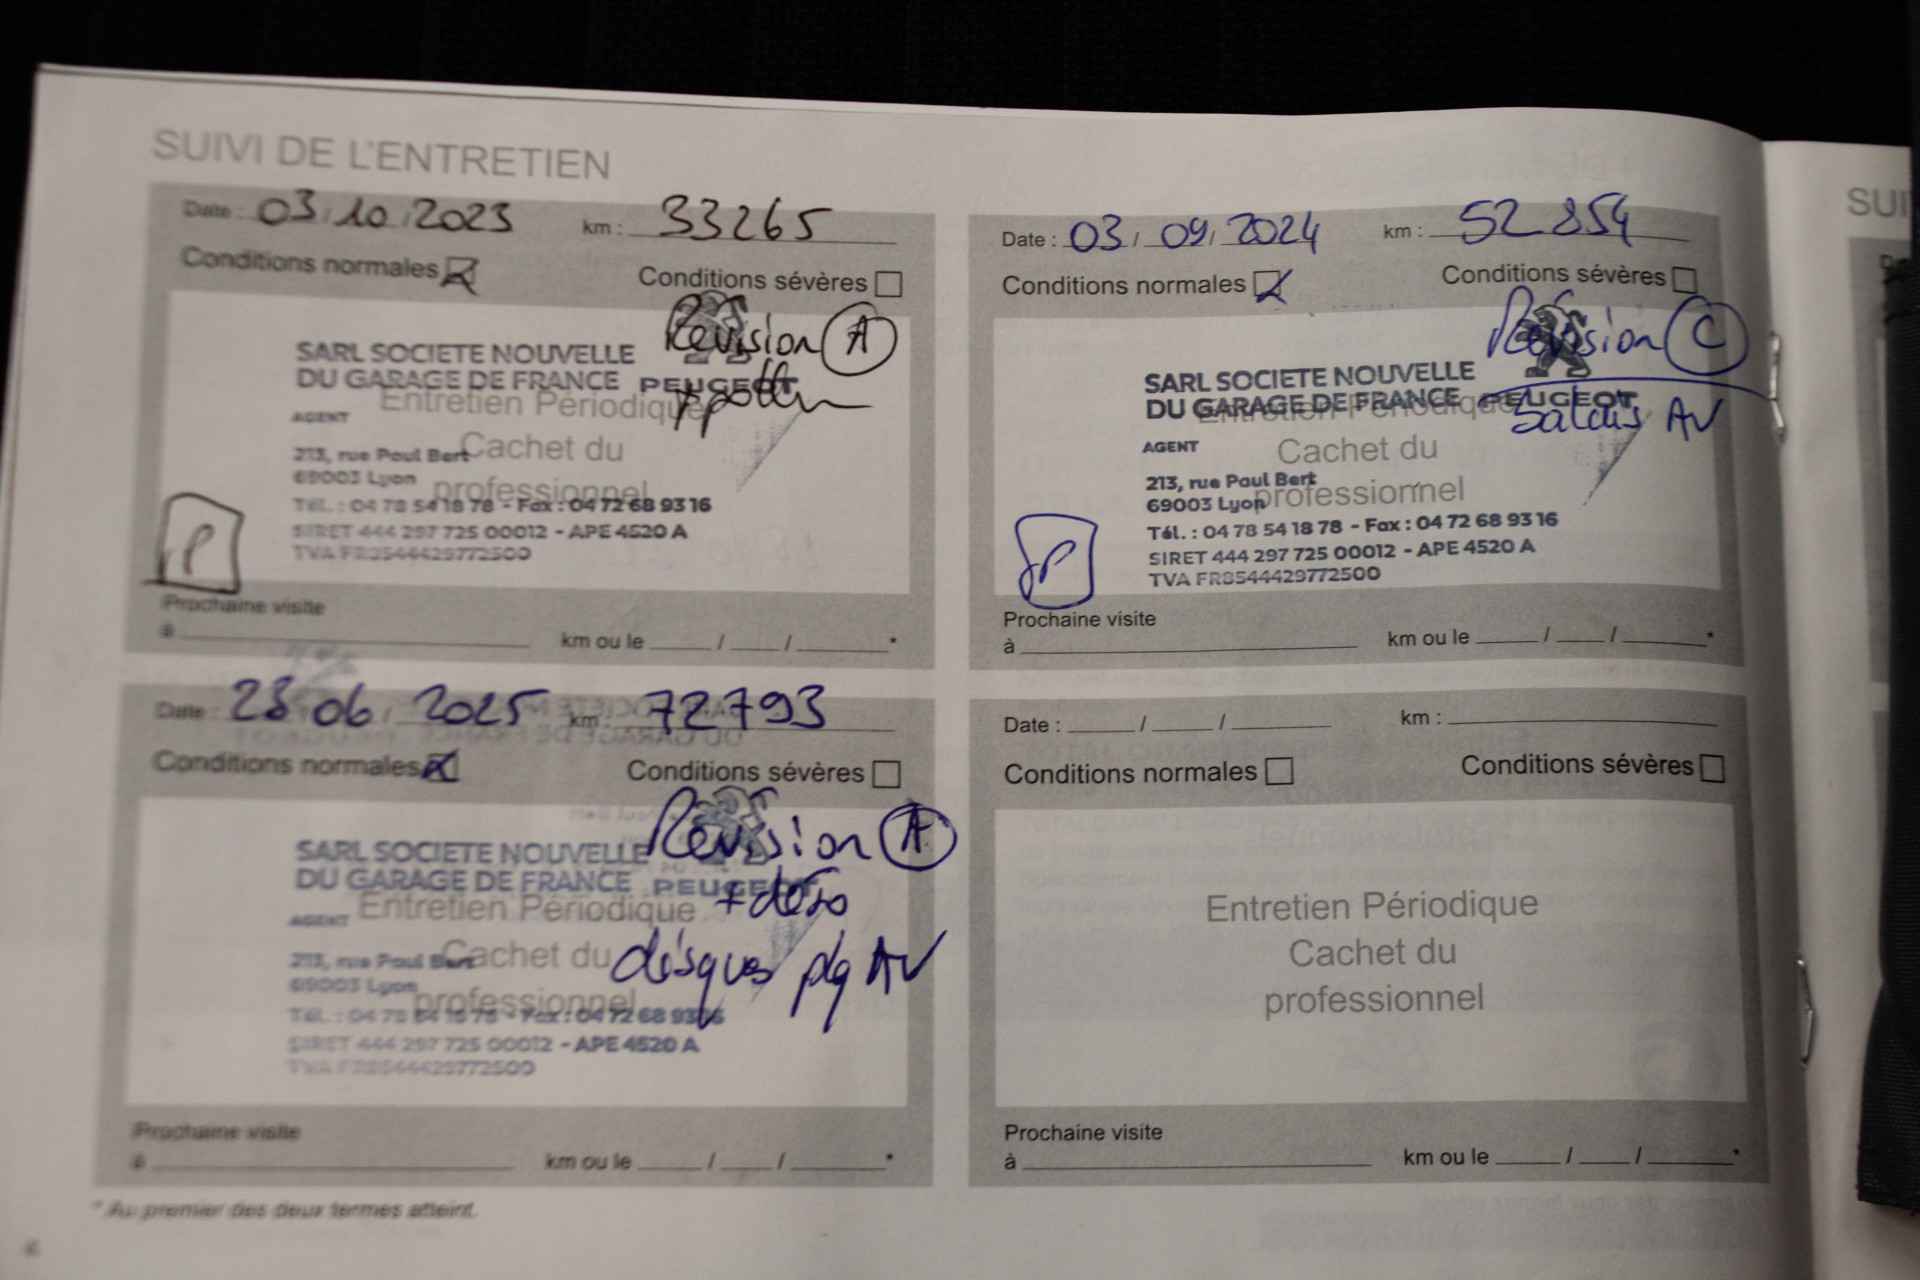 SUIVI DE L'ENTRETIEN
Date : 03 / 10 / 2023 km : 33265
Conditions normales Conditions sévères
Révision A
SARL SOCIETE NOUVELLE
DU GARAGE DE FRANCE PEUGEOT
Entretien Périodique
AGENT
Cachet du
213, rue Paul Bert
69003 Lyon
professionnel
Tél. : 04 78 54 18 78 - Fax : 04 72 68 93 16
SIRET 444 297 725 00012 - APE 4520 A
TVA FR8544429772500
P
Prochaine visite
à km ou le / / *
Date : 03 / 09 / 2024 km : 52 854
Conditions normales Conditions sévères
Révision C
SARL SOCIETE NOUVELLE
DU GARAGE DE FRANCE PEUGEOT
Entretien Périodique
AV
AGENT
Cachet du
213, rue Paul Bert
69003 Lyon
professionnel
Tél. : 04 78 54 18 78 - Fax : 04 72 68 93 16
SIRET 444 297 725 00012 - APE 4520 A
TVA FR8544429772500
P
Prochaine visite
à km ou le / / *
Date : 23 06 / 2025 km : 72793
Conditions normales Conditions sévères
Révision A
SARL SOCIETE NOUVELLE
DU GARAGE DE FRANCE PEUGEOT
Entretien Périodique
AGENT
Cachet du
disques plq AV
213, rue Paul Bert
69003 Lyon
professionnel
Tél. : 04 78 54 18 78 - Fax : 04 72 68 93 16
SIRET 444 297 725 00012 - APE 4520 A
TVA FR8544429772500
Prochaine visite
à km ou le / / *
Date : / / km :
Conditions normales Conditions sévères
Entretien Périodique
Cachet du
professionnel
Prochaine visite
à km ou le / / *
* Au premier des deux termes atteint.
SUI